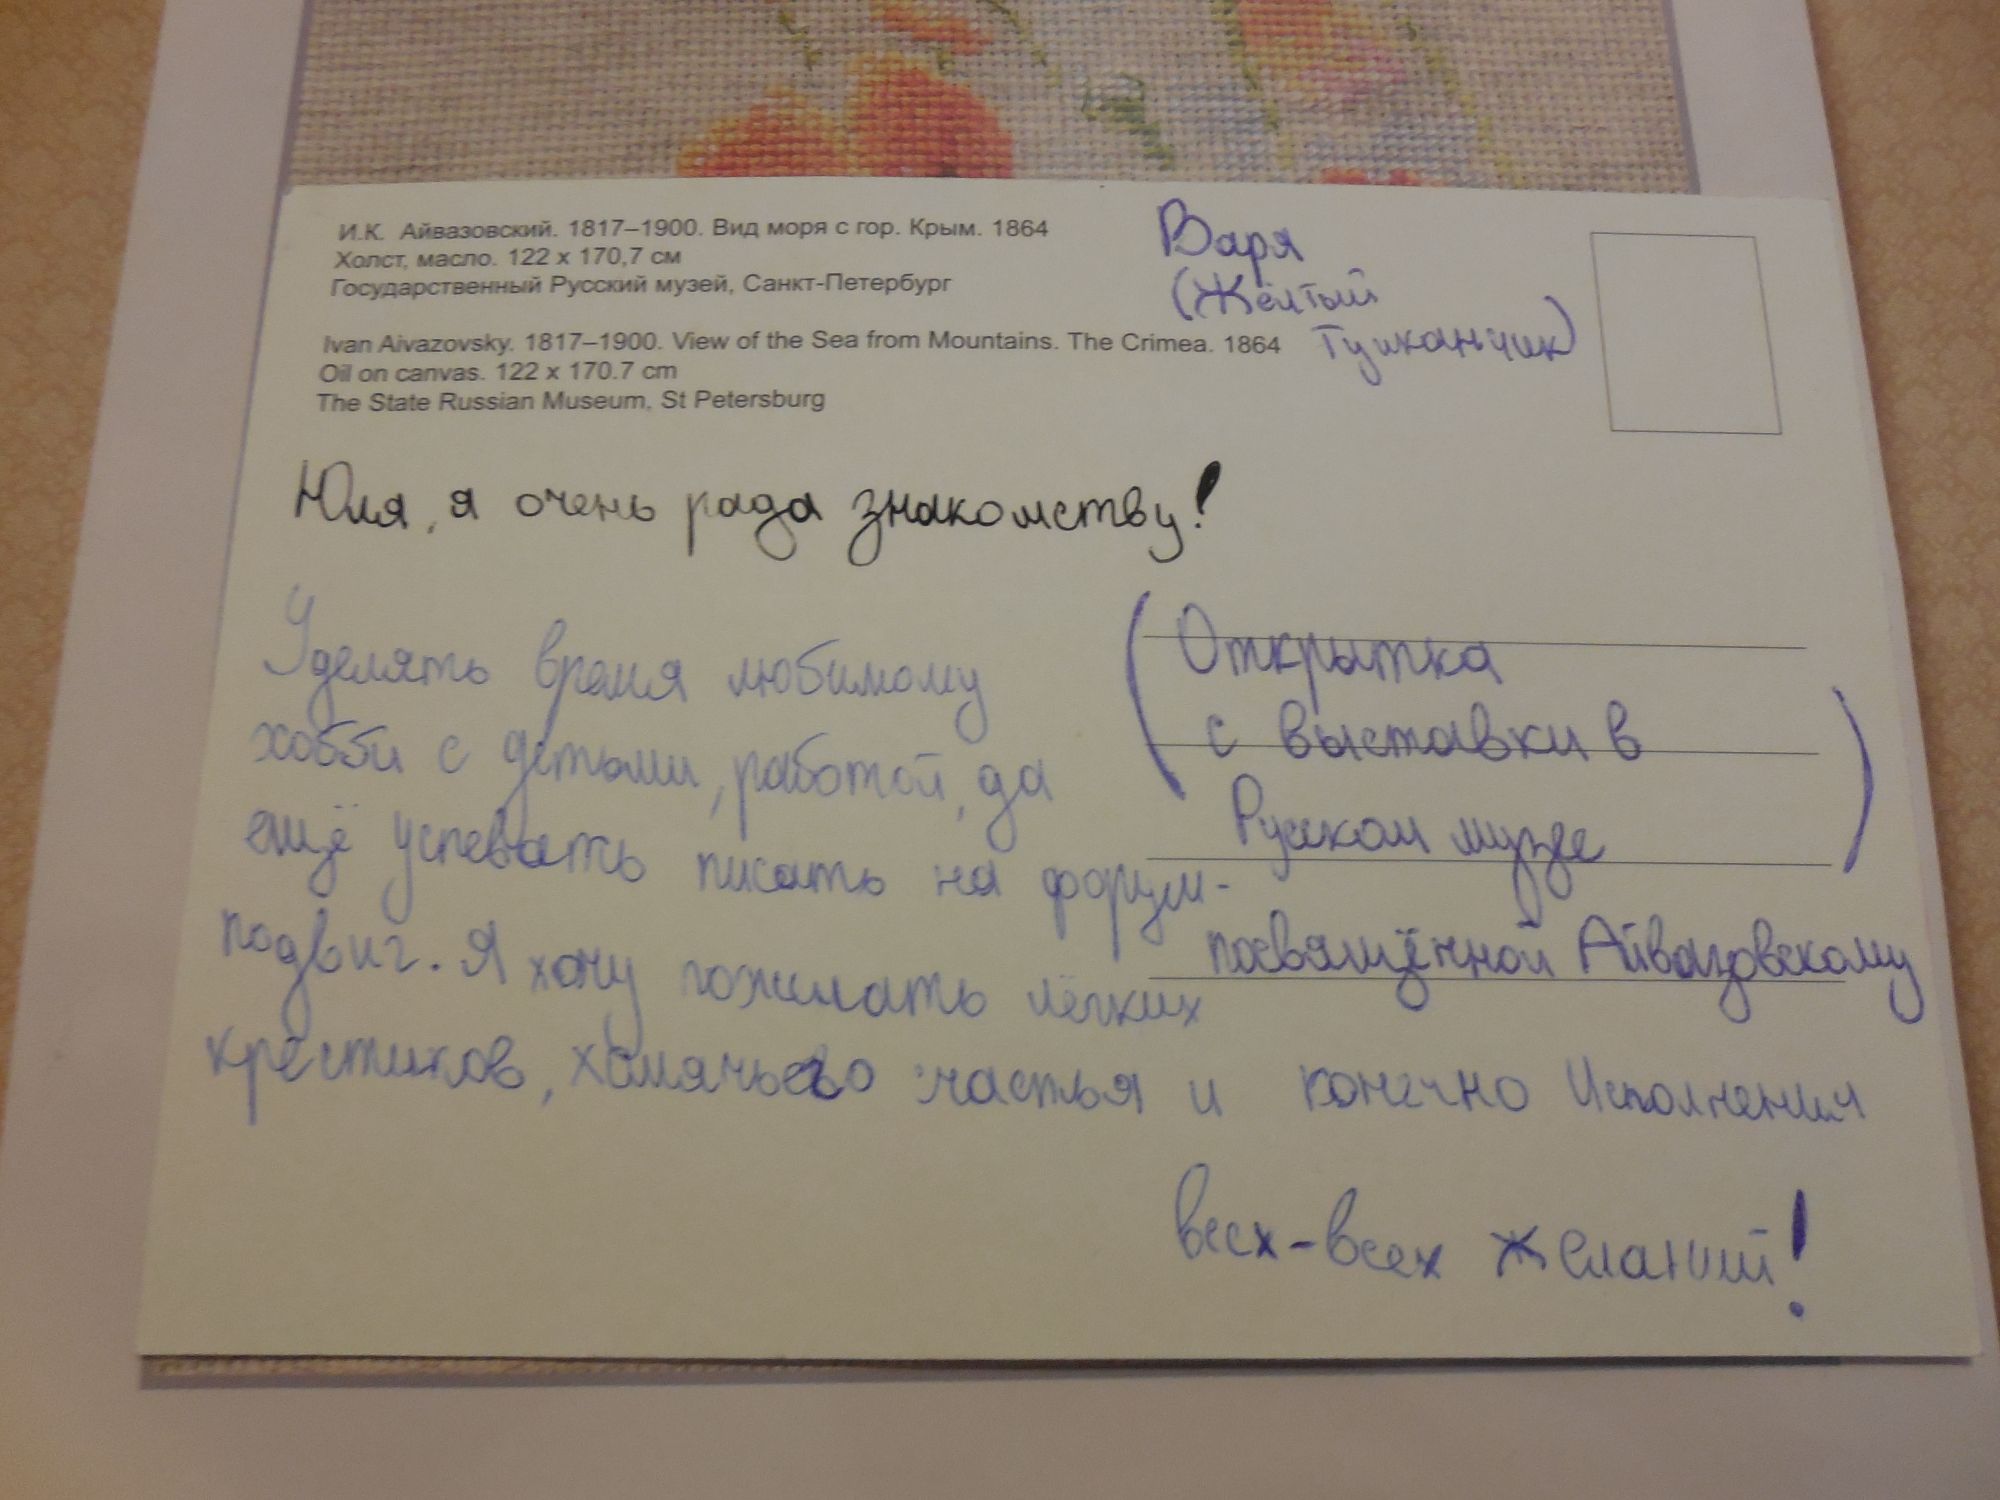 И.К. Айвазовский. 1817–1900. Вид моря с гор. Крым. 1864
Холст, масло. 122 x 170,7 см
Государственный Русский музей, Санкт-Петербург
Ivan Aivazovsky. 1817–1900. View of the Sea from Mountains. The Crimea. 1864
Oil on canvas. 122 x 170.7 cm
The State Russian Museum, St Petersburg
Варя
(Жёлтый
Тушканчик)
Юля, я очень рада знакомству!
Уделять время любимому
хобби с детьми, работой, да
ещё успевать писать на форум -
подвиг. Я хочу пожелать лёгких
крестиков, хомячьего счастья и конечно Исполнения
всех-всех желаний!
(Открытка
с выставки в
Русском музее)
посвящённой Айвазовскому